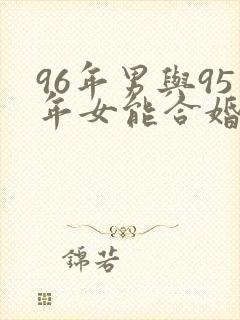 96年男與95
年女能合婚
錦若